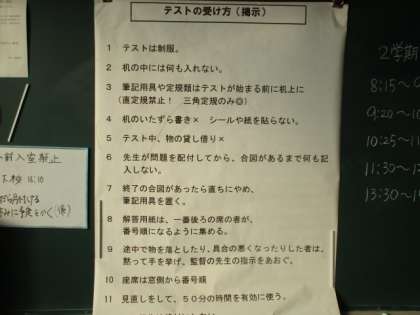 テストの受け方（掲示）
1 テストは制服。
2 机の中には何も入れない。
3 筆記用具や定規類はテストが始まる前に机上に
（直定規禁止！ 三角定規のみ◎）
4 机のいたずら書き× シールや紙を貼らない。
5 テスト中、物の貸し借り×
6 先生が問題を配付してから、合図があるまで何も記
入しない。
7 終了の合図があったら直ちにやめ、
筆記用具を置く。
8 解答用紙は、一番後ろの席の者が、
番号順になるように集める。
9 途中で物を落としたり、具合の悪くなったりした者は、
黙って手を挙げ、監督の先生の指示をあおぐ。
10 座席は窓側から番号順
11 見直しをして、５０分の時間を有効に使う。
入室禁止
16:10
2学期
8:15〜
9:20〜
10:25〜
11:30〜
13:30〜